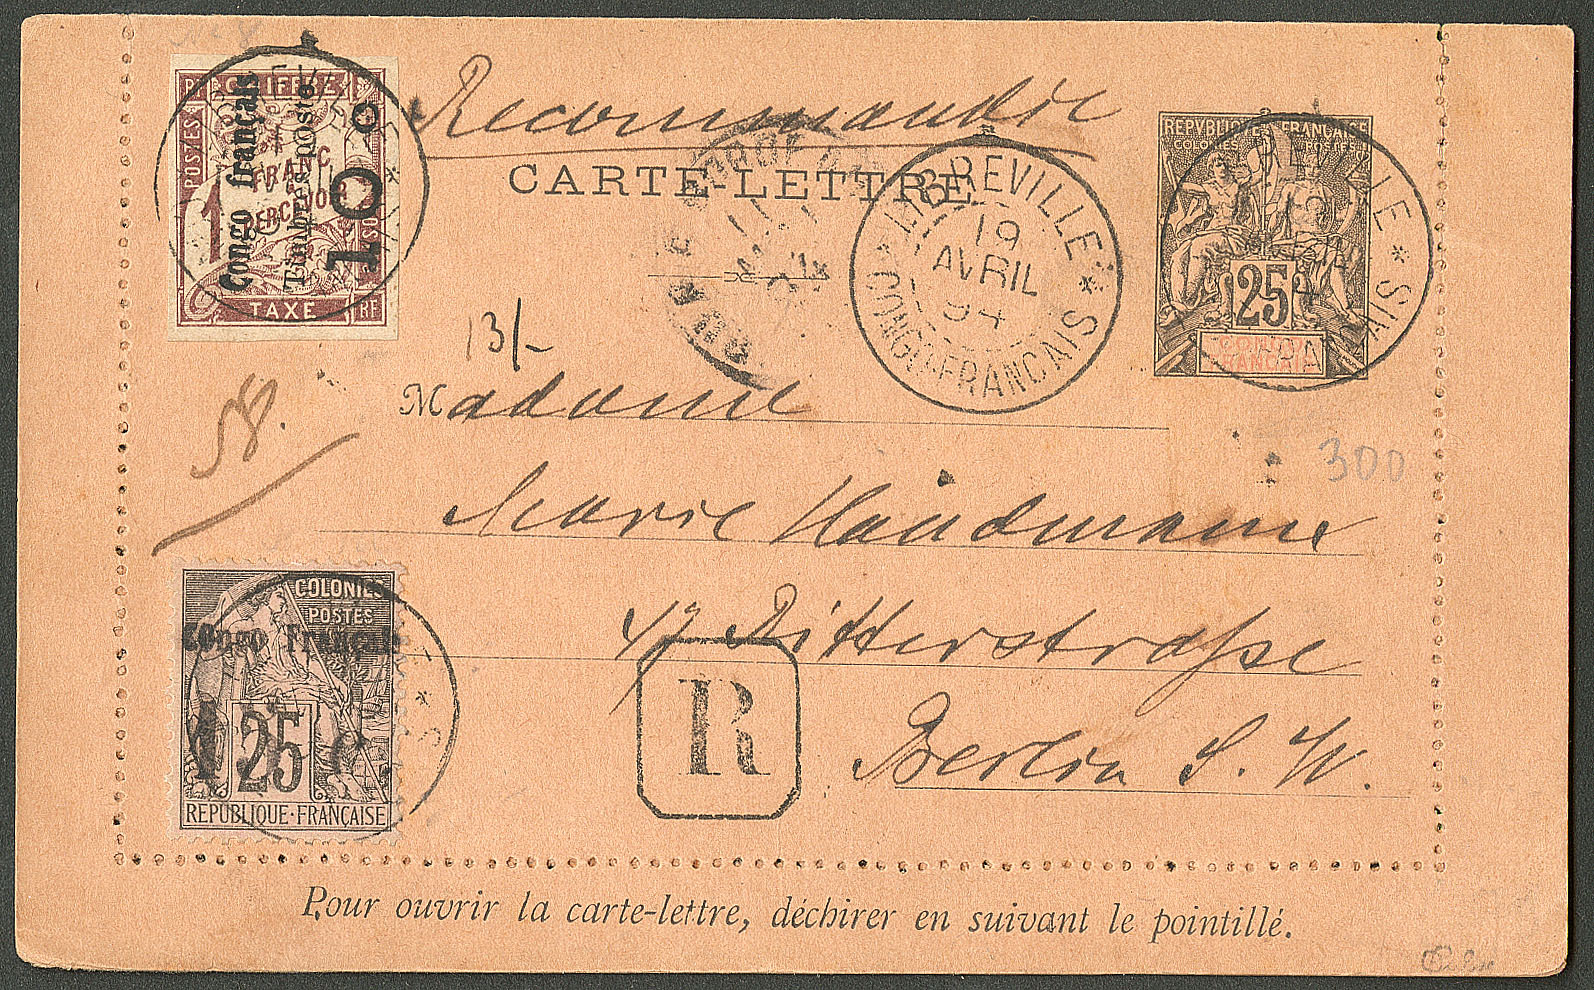 Recommandée
CARTE-LETTRE
RF CHIFFRE
POSTES
1
FRANC
PERCEVOIR
TAXE
RF
Congo français
Timbre poste
10c
LIBREVILLE
19
AVRIL
94
* CONGO-FRANCAIS *
REPVBLIQVE FRANÇAISE
COLONIES POSTES
25
CONGO
FRANÇAIS
13/-
58.
Madame
300
Marie Handmann
47 Ritterstraße
Berlin S. W.
R
COLONIES
POSTES
Congo français
1 25 c
REPUBLIQUE·FRANÇAISE
Pour ouvrir la carte-lettre, déchirer en suivant le pointillé.